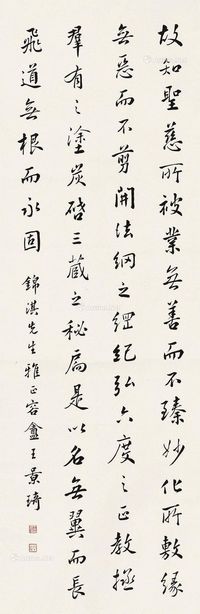 故知聖慈所被業無善而不臻妙化所敷緣
無惡而不剪開法網之綱紀弘六度之正教拯
群有之塗炭啓三藏之秘扃是以名無翼而長
飛道無根而永固
錦淇先生雅正容盦王景琦